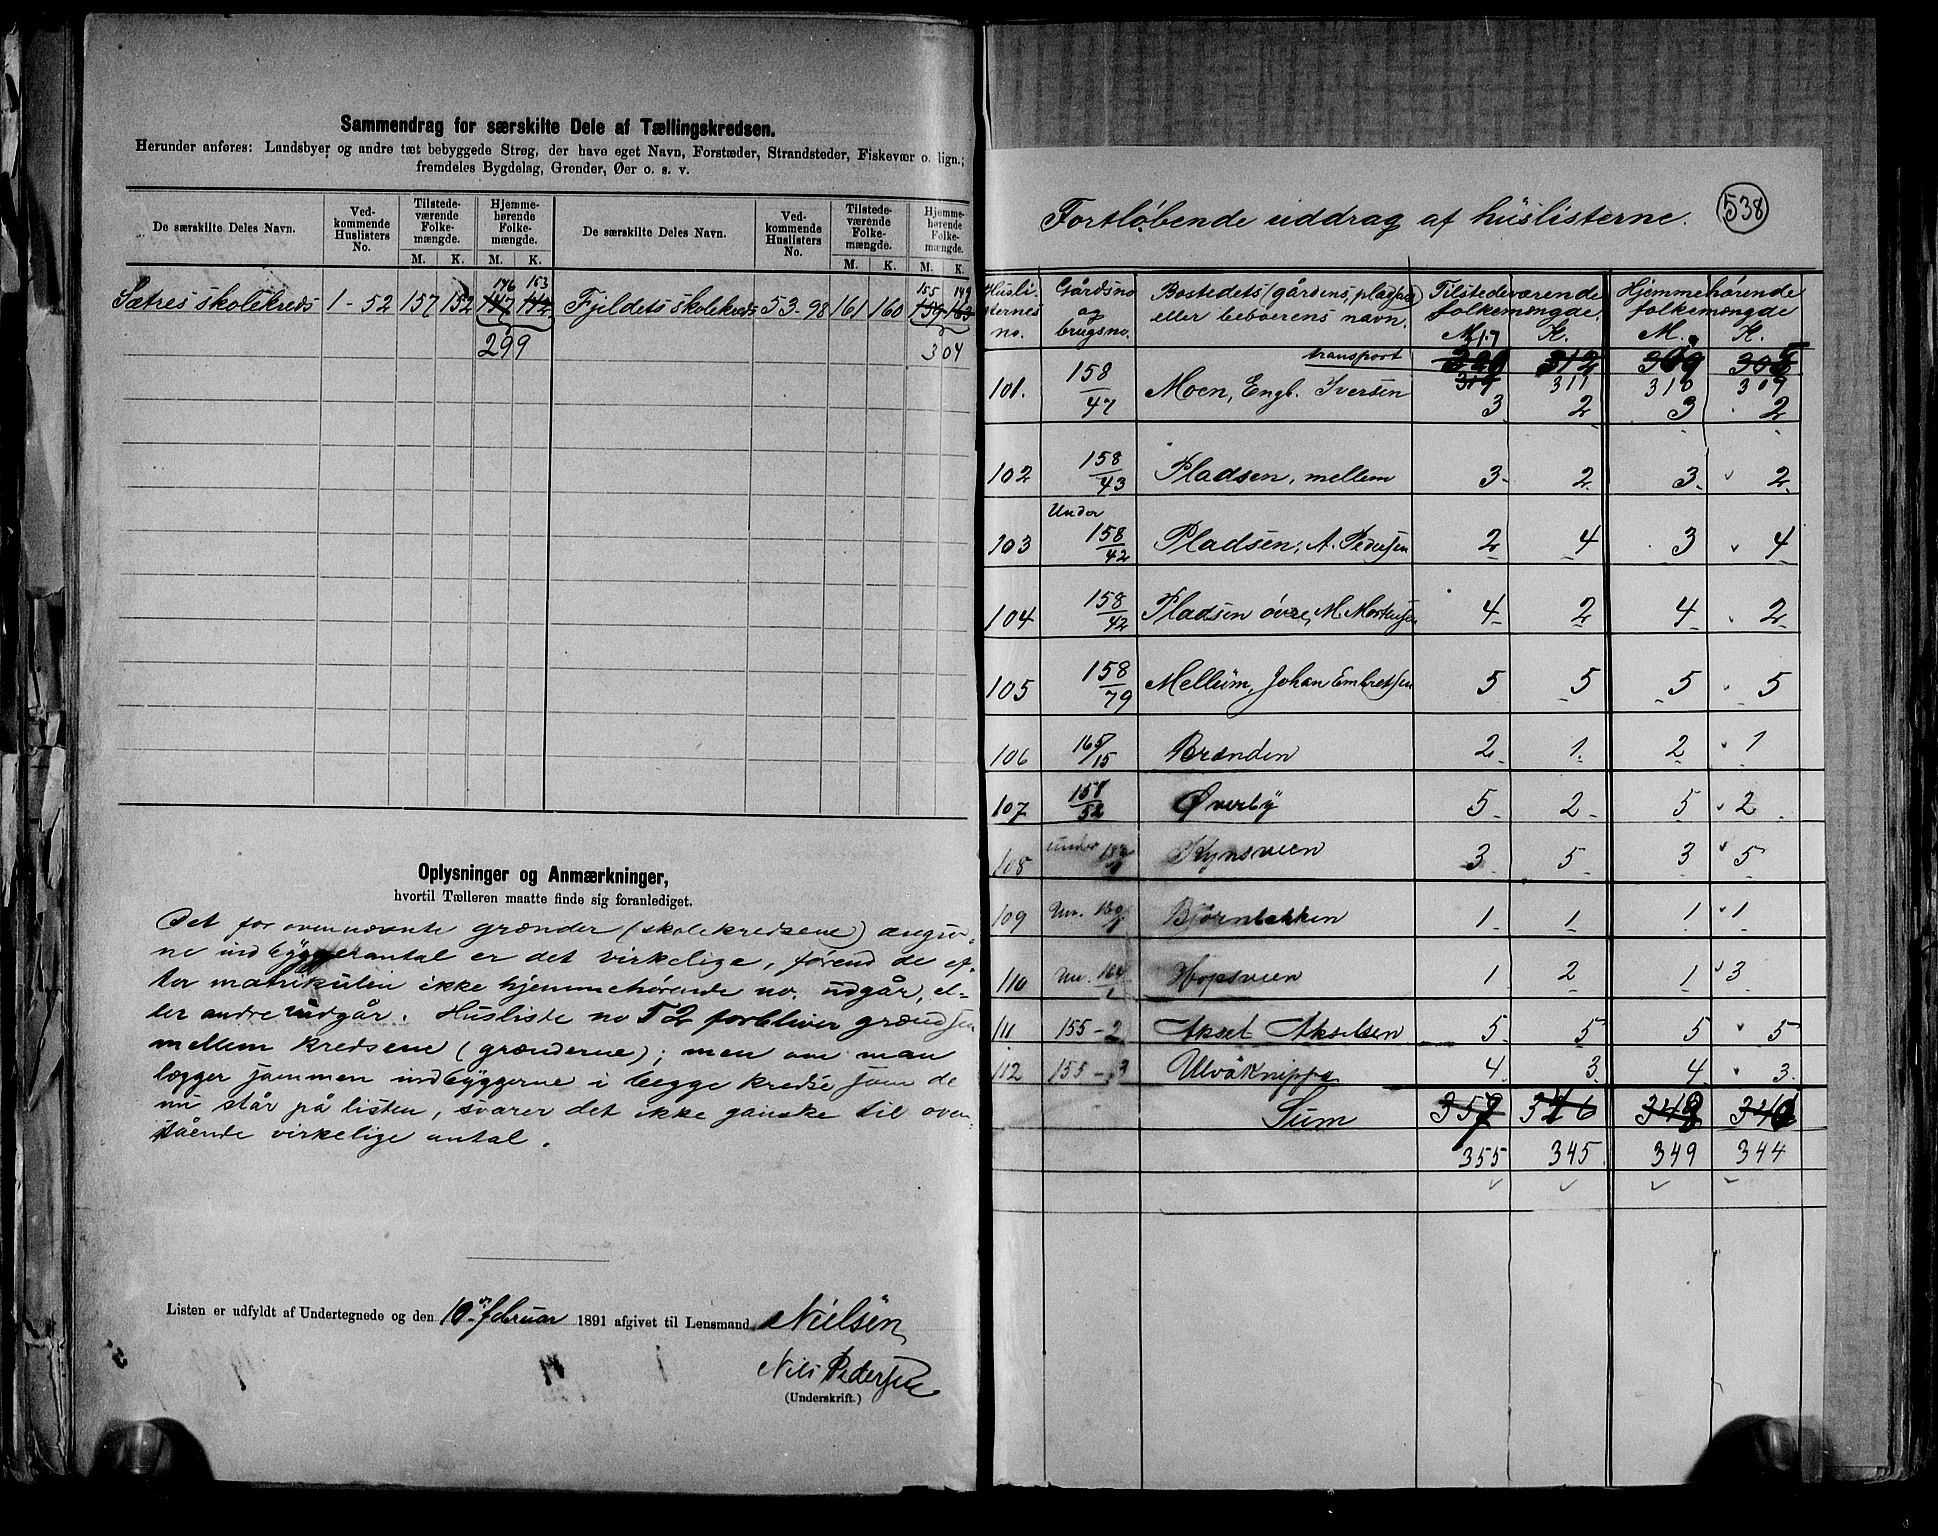 Sammendrag for særskilte Dele af Tællingskredsen.
Herunder anføres: Landsbyer og andre tæt bebyggede Strøg, der have eget Navn, Forstæder, Strandsteder, Fiskevær o. lign.;
fremdeles Bygdelag, Grender, Øer o. s. v.
De særskilte Deles Navn. Ved-kommende Huslisters No. Tilstede-værende Folke-mængde. Hjemme-hørende Folke-mængde. De særskilte Deles Navn. Ved-kommende Huslisters No. Tilstede-værende Folke-mængde. Hjemme-hørende Folke-mængde.
M. K. M. K. M. K. M. K.
146 153 155 149
Sætres skolekreds 1-52 157 152 147 142 Fjeldets skolekreds 53-98 161 160 159 163
299 304
Oplysninger og Anmærkninger,
hvortil Tælleren maatte finde sig foranlediget.
Det for ovennævnte grænder (skolekredsene) angiv-
ne indbyggerantal er det virkelige, førend de ef-
ter matrikulen ikke hjemmehørende no. udgår, el-
ler andre indgår. Husliste no 52 forbliver grændsen
mellem kredsene (grænderne); men om man
lægger sammen indbyggerne i begge kredse som de
nu står på listen, svarer det ikke ganske til oven-
stående virkelige antal.
Listen er udfyldt af Undertegnede og den 10de februar 1891 afgivet til Lensmand Nielsen
Nils Pedersen
(Underskrift.)
538
Fortløbende uddrag af huslisterne.
Huslisternes no. Gårdsno og brugsno. Bostedets (gårdens, pladsens) eller beboerens navn. Tilstedeværende folkemængde. Hjemmehørende folkemængde
M. K. M. K.
transport 320 312 309 305
317 311 310 307
101. 158/47 Moen, Engb. Iversen 3 2 3 2
102 158/43 Pladsen, mellem 3 2 3 2
103 Under 158/42 Pladsen, A. Pedersen 2 4 3 4
104 158/42 Pladsen øvre, M. Mortensen 4 2 4 2
105 158/79 Mellum, Johan Embretsen 5 5 5 5
106 165/15 Brænden 2 1 2 1
107 158/52 Øverby 5 2 5 2
108 under Kynsveen 3 5 3 5
109 Un. Bjørnbakken 1 1 1 1
110 Un. Hopsveen 1 2 1 3
111 155-2 Aksel Akselsen 5 5 5 5
112 155-3 Ulvåknippa 4 3 4 3
Sum 357 346 348 340
355 345 349 344